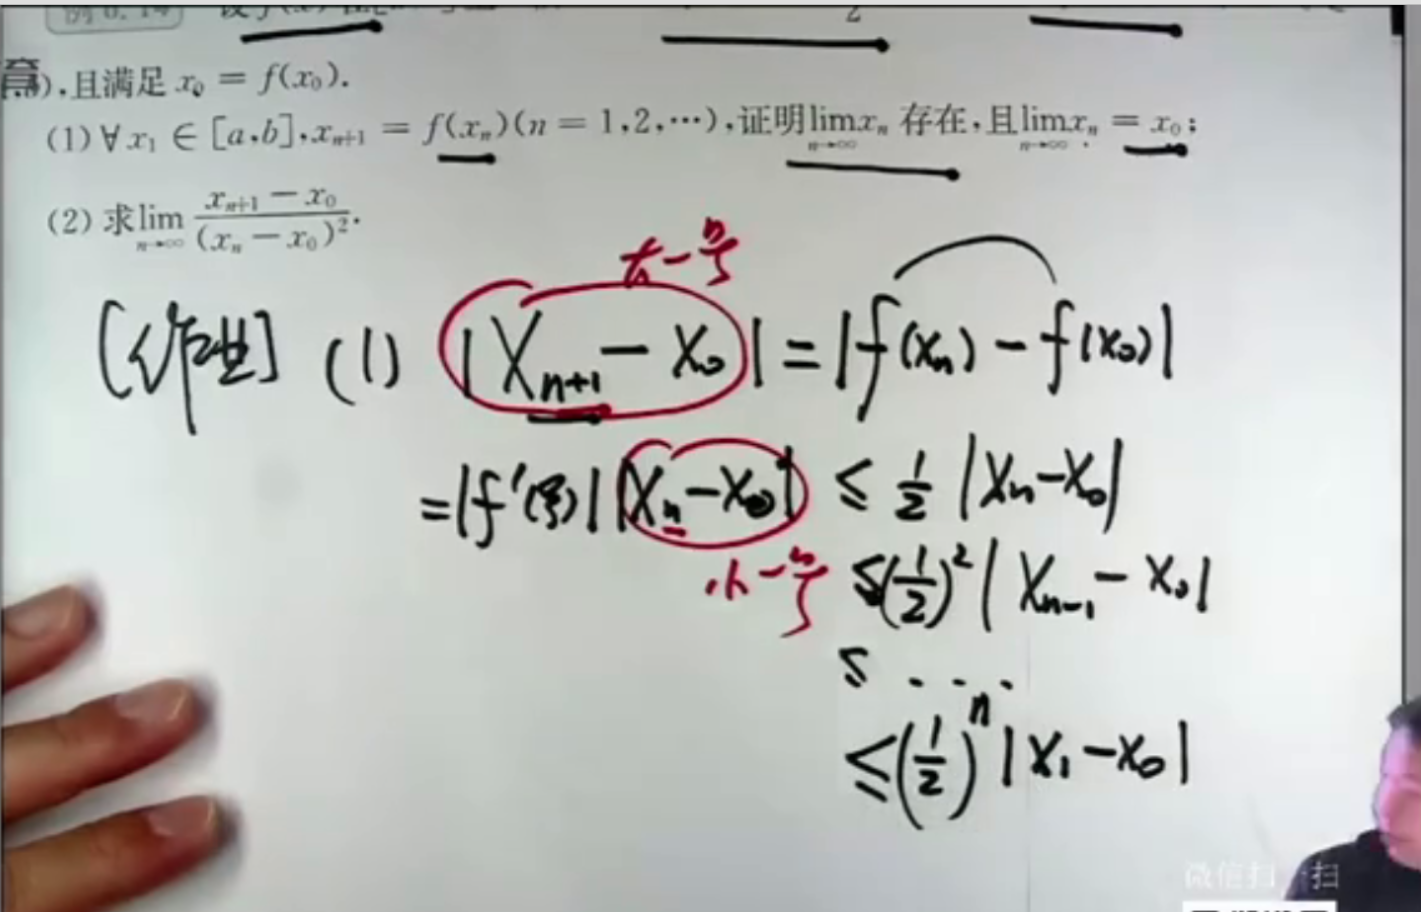 例 6.14
2
幂),且满足 x₀ = f(x₀).
(1) ∀ x₁ ∈ [a,b], xₙ₊₁ = f(xₙ)(n = 1,2,⋯),证明 lim_{n→∞} xₙ 存在,且 lim_{n→∞} xₙ = x₀;
(2) 求 lim_{n→∞} (xₙ₊₁ − x₀)/(xₙ − x₀)².
大一号
(1) |Xₙ₊₁ − X₀| = |f(Xₙ) − f(X₀)|
= |f′(ξ)| |Xₙ − X₀| ≤ 1/2 |Xₙ − X₀|
小一号 ≤ (1/2)² |Xₙ₋₁ − X₀|
≤ ⋯
≤ (1/2)ⁿ |X₁ − X₀|
微信扫一扫